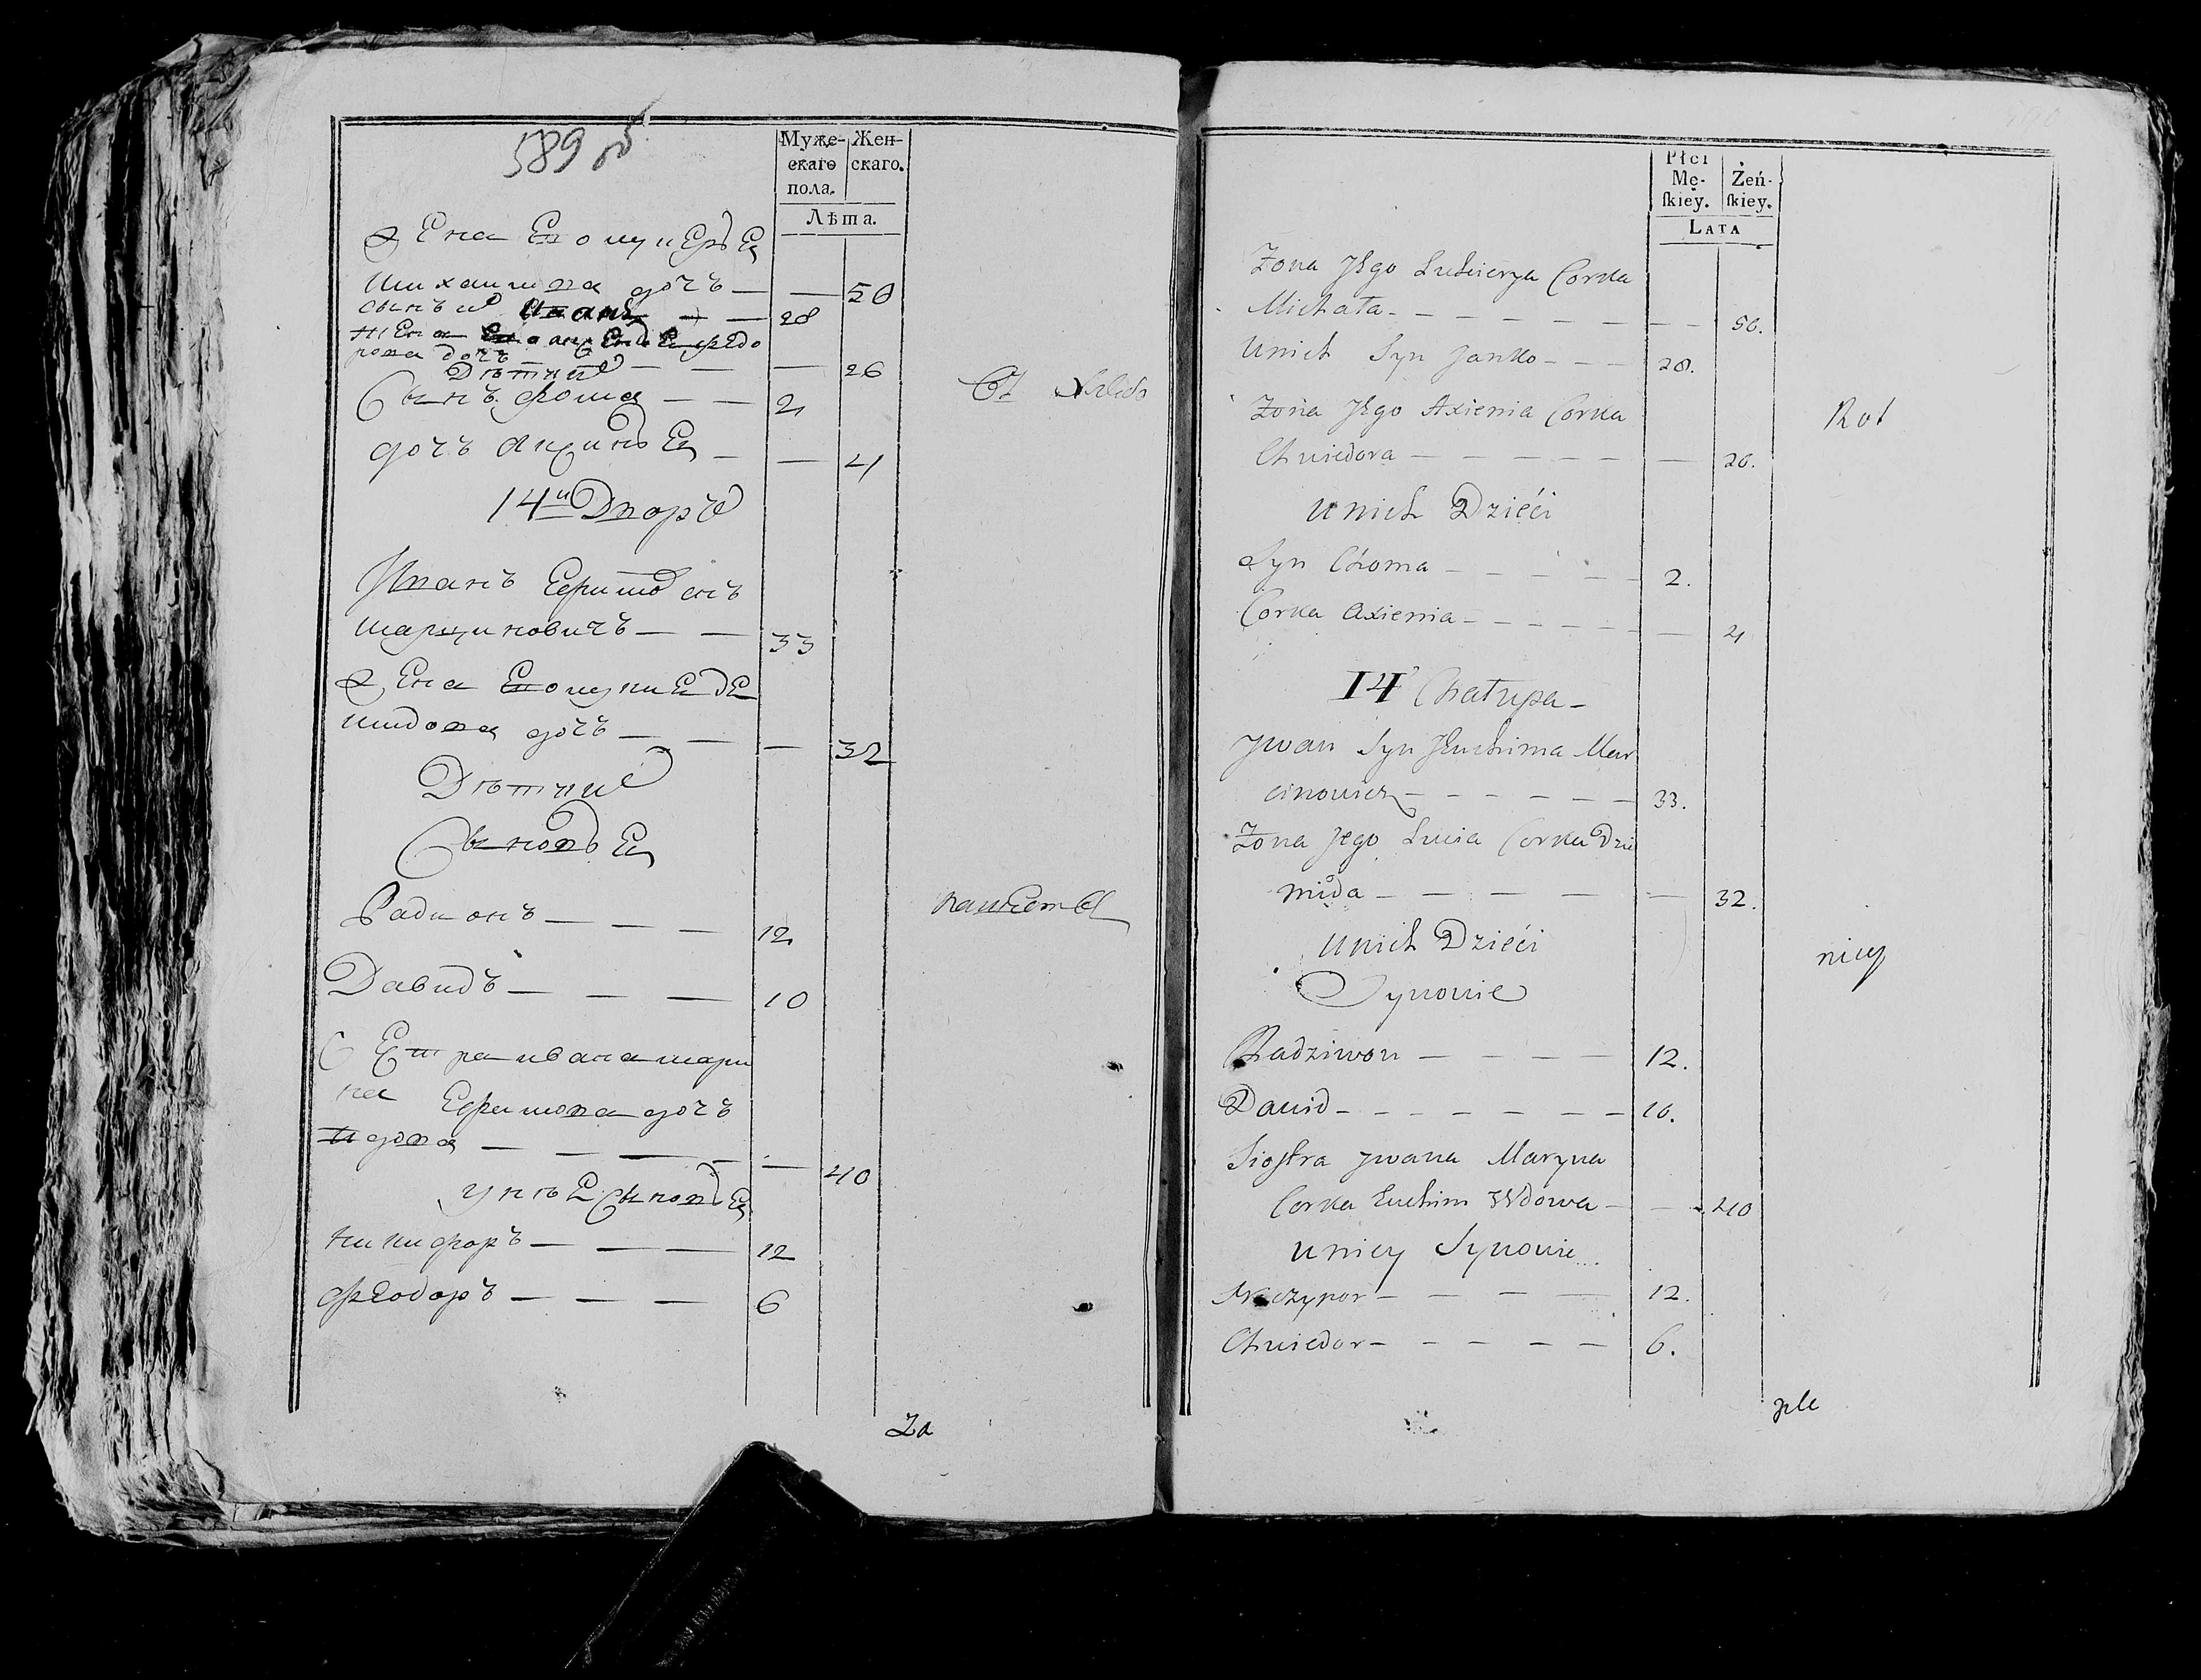 589 об
Муже-
скаго
пола.
Жен-
скаго.
Лѣта.
Жена Его лукерья
михаилова дочь — — 56
сынъ их Иванъ — — 28
жена Его аксенья федо
рова дочь — — — 26
Дѣти их
Сынъ фома — — 2
дочь аксинья — — 4
14й Дворъ
Иванъ Ефимовъ сынъ
марциновичъ — — 33
Жена Его лукия де
мидова дочь — — — 32
Дѣти ихъ
Сыновья
Радионъ — — — 12
Давидъ — — — 10
Сестра ивана мари
на Ефимова дочь
вдова — — — — 40
у нее Сыновья
никифоръ — — — 12
федоръ — — — 6
Za
Płci
Mę-
ſkiey.
Żeń-
ſkiey.
LATA
Zona Jego Lukierya Corka
Michała — — — 56.
Unich Syn Janko — — 28.
Zona Jego Axienia Corka
Chwiedora — — — 26.
Rol
Unich Dzieći
Syn Choma — — — 2.
Corka Axienia — — — 4
14 Chałupa —
Jwan Syn Jeuchima Mar
cinowicz — — — 33.
Zona Jego Lucia Corka Dzie
mida — — — 32.
Unich Dzieći
nicy
Synowie
Radziwon — — — 12.
Dawid — — — 10.
Siostra Jwana Maryna
Corka Euchim Wdowa — — 40
Uniey Synowie
Nieczypor — — — 12.
Chwiedor — — — 6.